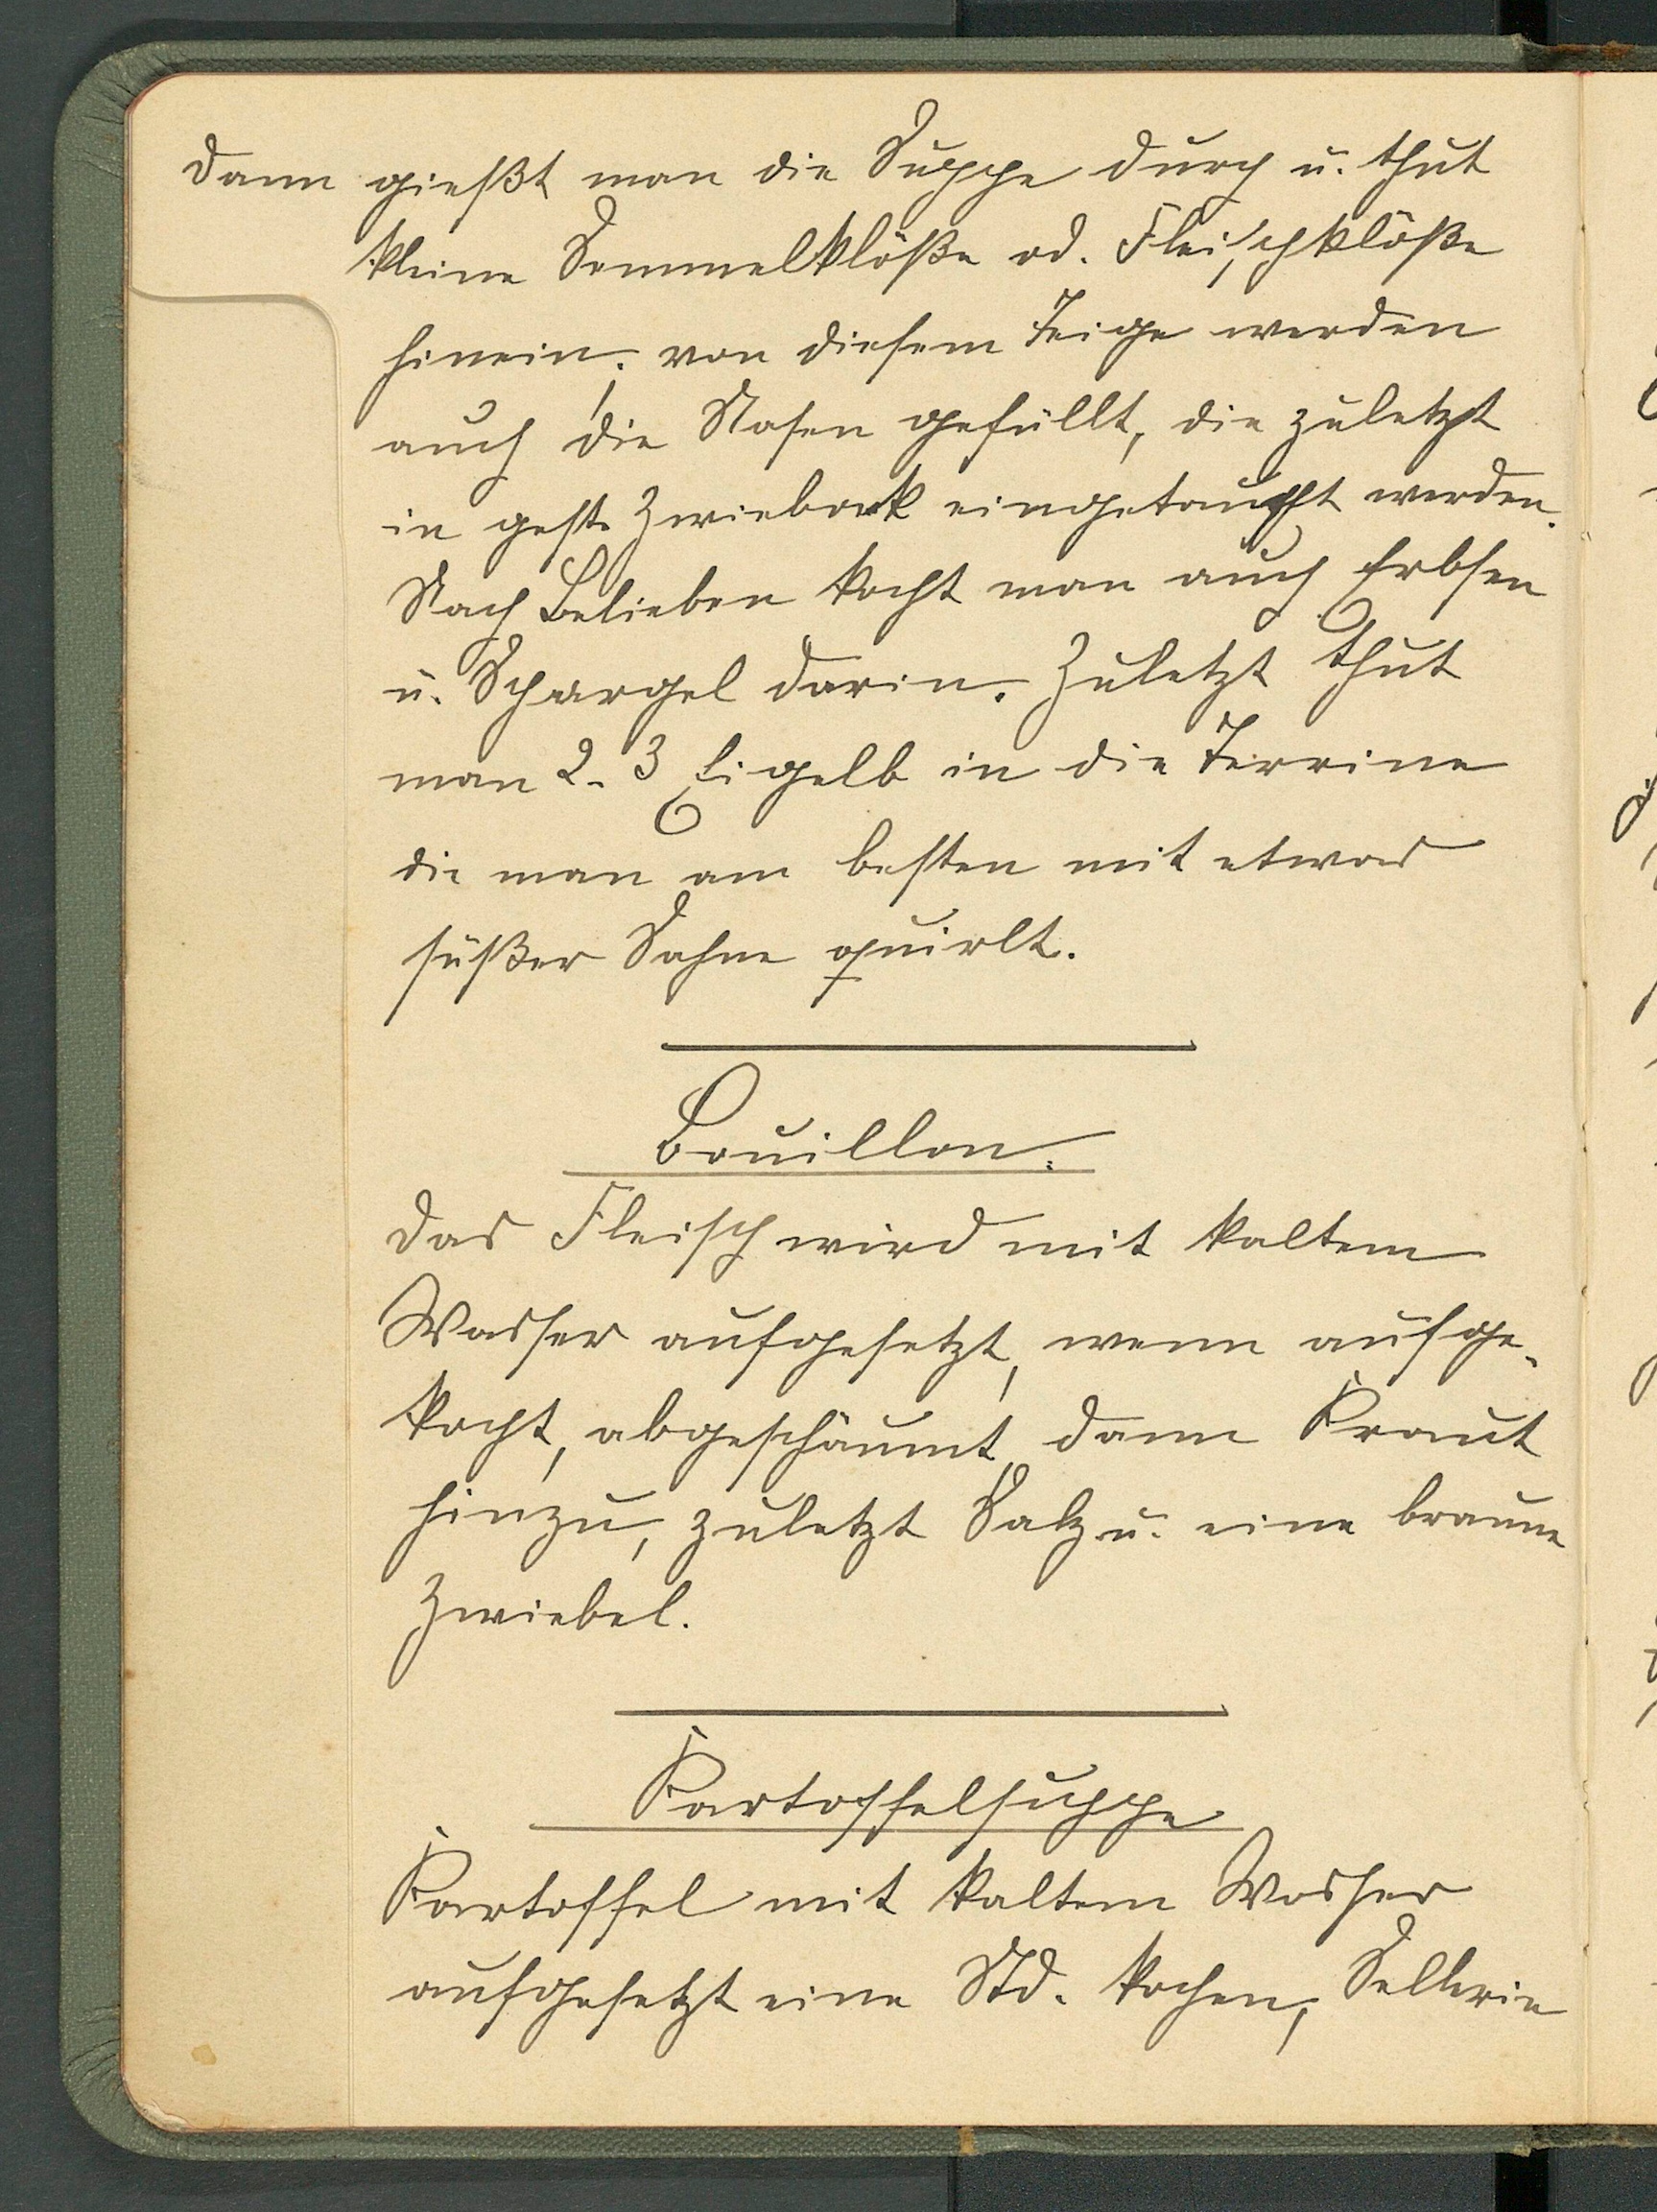 dann gießt man die Suppe durch u. thut
kleine Semmelklöße od. Fleischklöße
hinein. von diesem Teige werden
auch die Nasen gefüllt, die zuletzt
in gest. Zwieback eingetaucht werden.
Nach Belieben kocht man auch Erbsen
u. Spargel darin. Zuletzt thut
man 2-3 Eigelb in die Terrine
die man am besten mit etwas
süßer Sahne quirlt.
Bouillon.
das Fleisch wird mit kaltem
Wasser aufgesetzt, wenn aufge-
kocht, abgeschäumt, dann Kraut
hinzu, zuletzt Salz u. eine braune
Zwiebel.
Kartoffelsuppe
Kartoffel mit kaltem Wasser
aufgesetzt eine Std. kochen, Sellerie